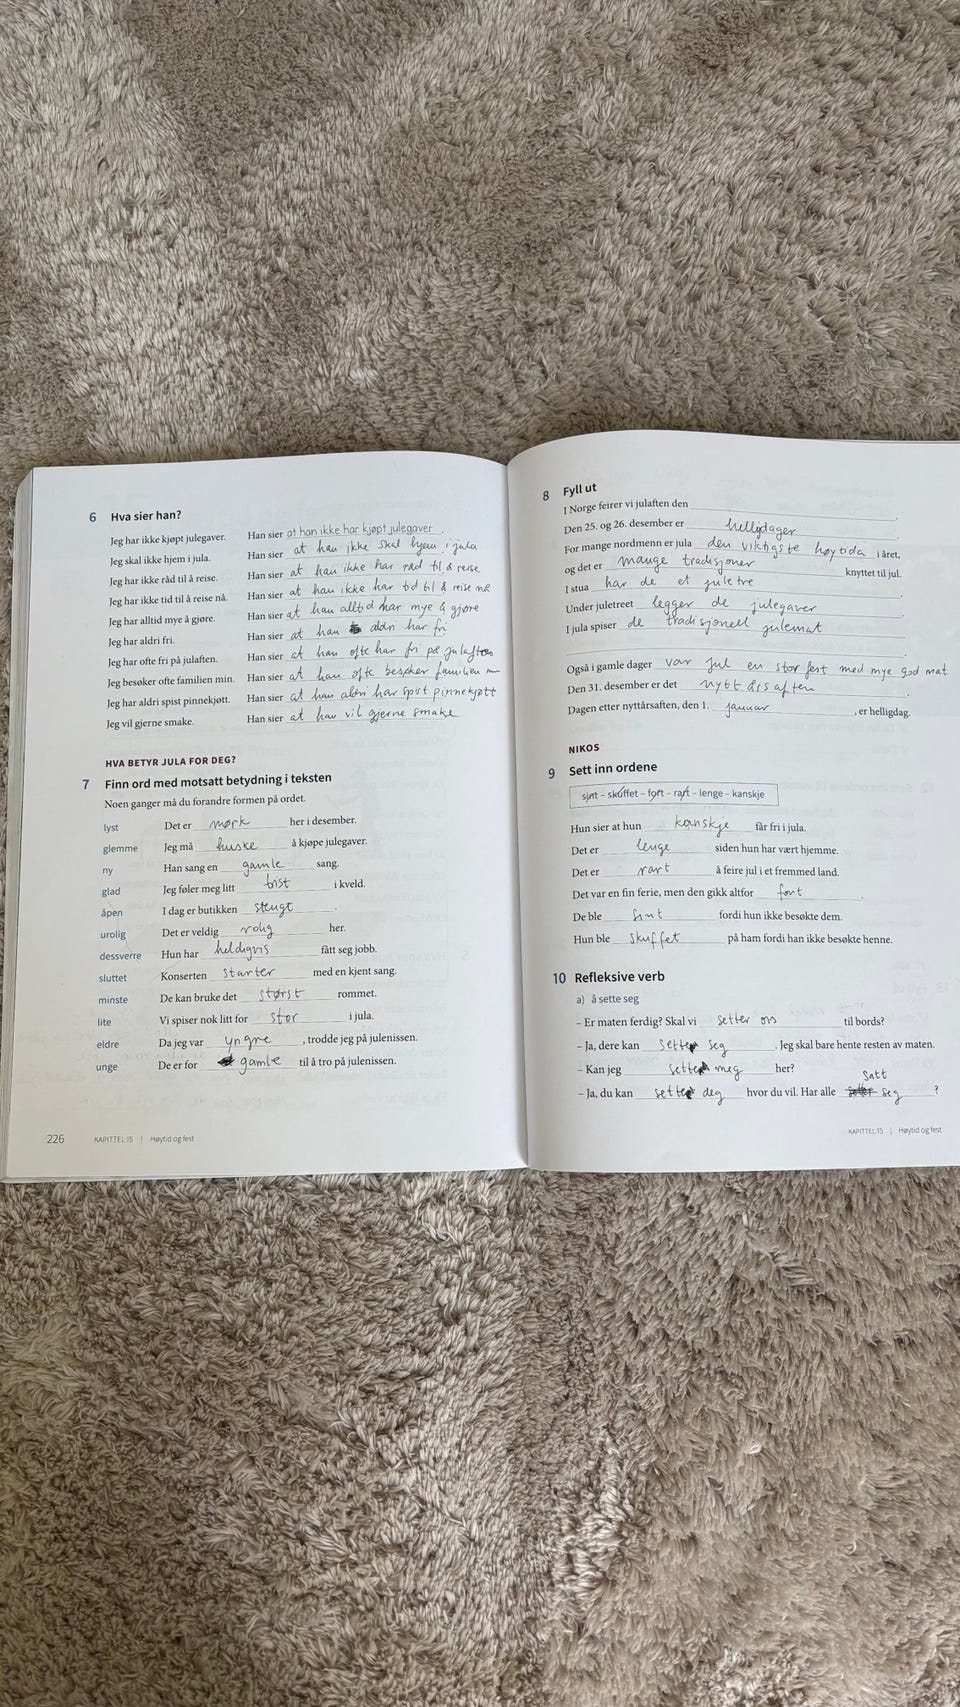 6 Hva sier han?
Jeg har ikke kjøpt julegaver. Han sier at han ikke har kjøpt julegaver.
Jeg skal ikke hjem i jula. Han sier at han ikke skal hjem i jula
Jeg har ikke råd til å reise. Han sier at han ikke har råd til å reise
Jeg har ikke tid til å reise nå. Han sier at han ikke har tid til å reise nå
Jeg har alltid mye å gjøre. Han sier at han alltid har mye å gjøre
Jeg har aldri fri. Han sier at han aldri har fri
Jeg har ofte fri på julaften. Han sier at han ofte har fri på julaften
Jeg besøker ofte familien min. Han sier at han ofte besøker familien min
Jeg har aldri spist pinnekjøtt. Han sier at han aldri har spist pinnekjøtt
Jeg vil gjerne smake. Han sier at han vil gjerne smake
HVA BETYR JULA FOR DEG?
7 Finn ord med motsatt betydning i teksten
Noen ganger må du forandre formen på ordet.
lyst Det er mørk her i desember.
glemme Jeg må huske å kjøpe julegaver.
ny Han sang en gamle sang.
glad Jeg føler meg litt trist i kveld.
åpen I dag er butikken stengt.
urolig Det er veldig rolig her.
dessverre Hun har heldigvis fått seg jobb.
sluttet Konserten starter med en kjent sang.
minste De kan bruke det størst rommet.
lite Vi spiser nok litt for stor i jula.
eldre Da jeg var yngre, trodde jeg på julenissen.
unge De er for gamle til å tro på julenissen.
226 KAPITTEL 15 | Høytid og fest
8 Fyll ut
I Norge feirer vi julaften den .
Den 25. og 26. desember er helligdager.
For mange nordmenn er jula den viktigste høytida i året,
og det er mange tradisjoner knyttet til jul.
I stua har de et juletre.
Under juletreet legger de julegaver
I jula spiser de tradisjonell julemat
Også i gamle dager var jul en stor fest med mye god mat
Den 31. desember er det nyttårsaften.
Dagen etter nyttårsaften, den 1. januar, er helligdag.
NIKOS
9 Sett inn ordene
sint – skuffet – fort – rart – lenge – kanskje
Hun sier at hun kanskje får fri i jula.
Det er lenge siden hun har vært hjemme.
Det er rart å feire jul i et fremmed land.
Det var en fin ferie, men den gikk altfor fort.
De ble sint fordi hun ikke besøkte dem.
Hun ble skuffet på ham fordi han ikke besøkte henne.
10 Refleksive verb
a) å sette seg
– Er maten ferdig? Skal vi setter oss til bords?
– Ja, dere kan sette seg. Jeg skal bare hente resten av maten.
– Kan jeg sette meg her?
– Ja, du kan sette deg hvor du vil. Har alle satt seg?
KAPITTEL 15 | Høytid og fest